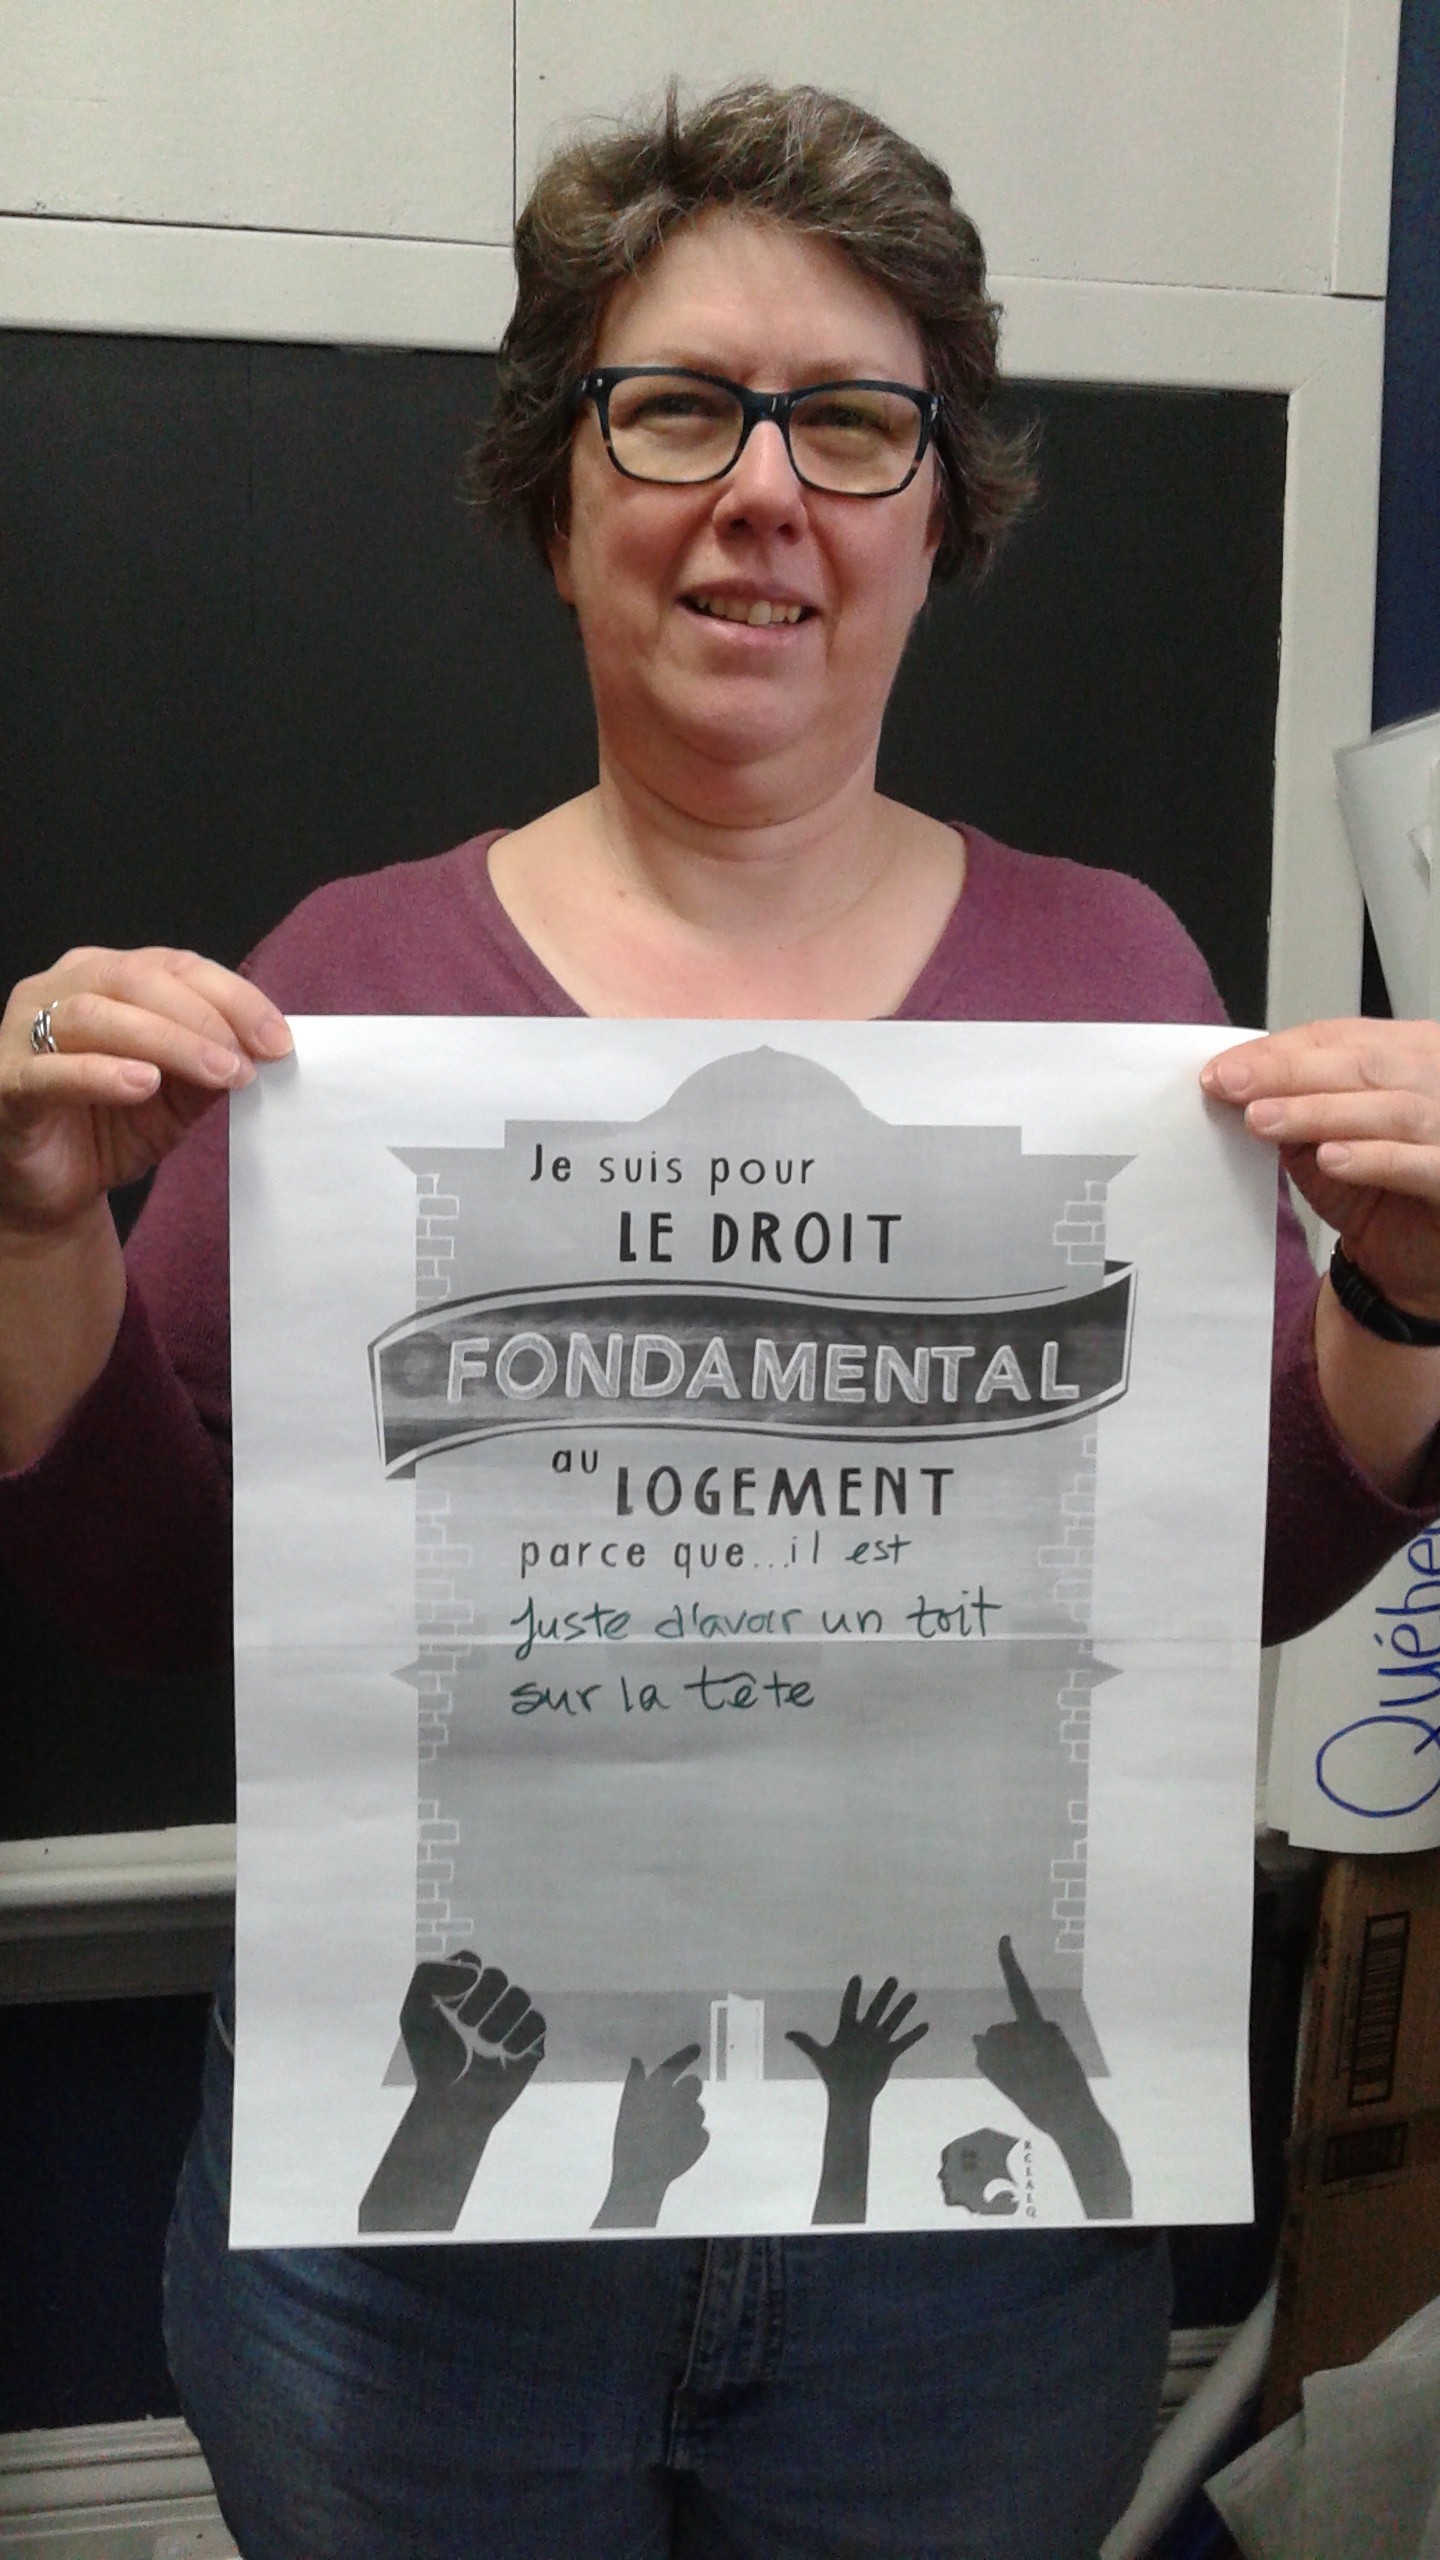 Je suis pour
LE DROIT
FONDAMENTAL
au LOGEMENT
parce que...il est
Juste d'avoir un toit
sur la tête
RCLALQ